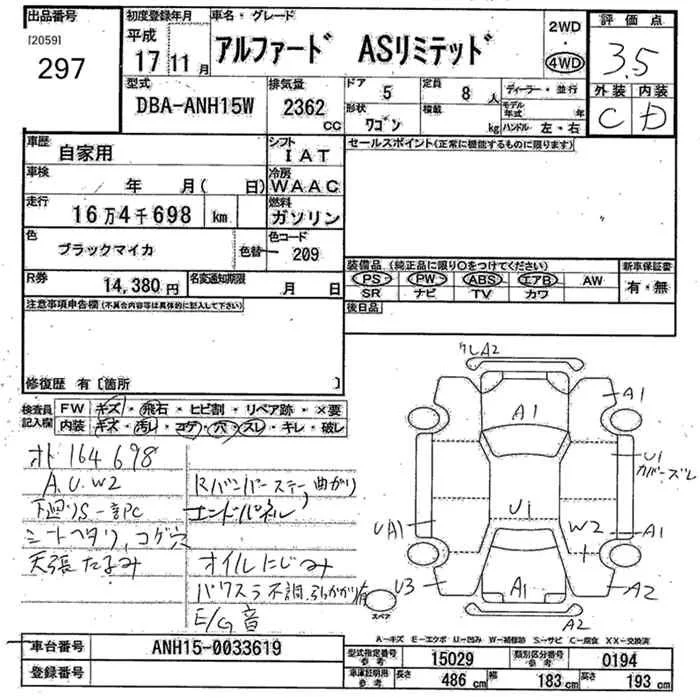 出品番号
[2059]
297
初度登録年月
平成
17 11 月
車名・グレード
アルファード ASリミテッド
2WD
・
4WD
評価点
3.5
外装 内装
C D
型式
DBA-ANH15W
排気量
2362
CC
ドア
5
定員
8 人
形状
ワゴン
積載
kg
ディーラー・並行
モデル年式 年
ハンドル 左・右
車歴
自家用
シフト
IAT
車検
年 月( 日)
冷房
WAAC
走行
16万4千698 km
燃料
ガソリン
色
ブラックマイカ
色替
色コード
209
R券
14,380円
名変通知期限
月 日
セールスポイント(正常に機能するものに限ります)
装備品 (純正品に限り○をつけてください)
PS PW ABS エアB AW
SR ナビ TV カワ
新車保証書
有・無
後日品
注意事項申告欄(不具合内容等は具体的に記入して下さい)
修復歴 有〔箇所 〕
検査員記入欄
FW キズ・飛石・ヒビ割・リペア跡・×要
内装 キズ・汚れ・コゲ・穴・スレ・キレ・破レ
オト164698
A.U.W2
下廻りS
シートヘタリ、コゲ穴
天張たるみ
Rバンパーステー曲がり
エンドパネル
オイルにじみ
パワスラ不調、引っかかり有
E/G音
クレA2
A1
A1
U1
カバーズレ
U1
UA1
W2
A1
U3
A1
A2
A2
スペア
A-キズ E-エクボ U-凹み W-補修跡 S-サビ C-腐食 XX-交換済
車台番号
ANH15-0033619
登録番号
型式指定番号
参考
15029
類別区分番号
参考
0194
車庫証明用
参考
長さ
486 cm
幅
183 cm
高さ
193 cm